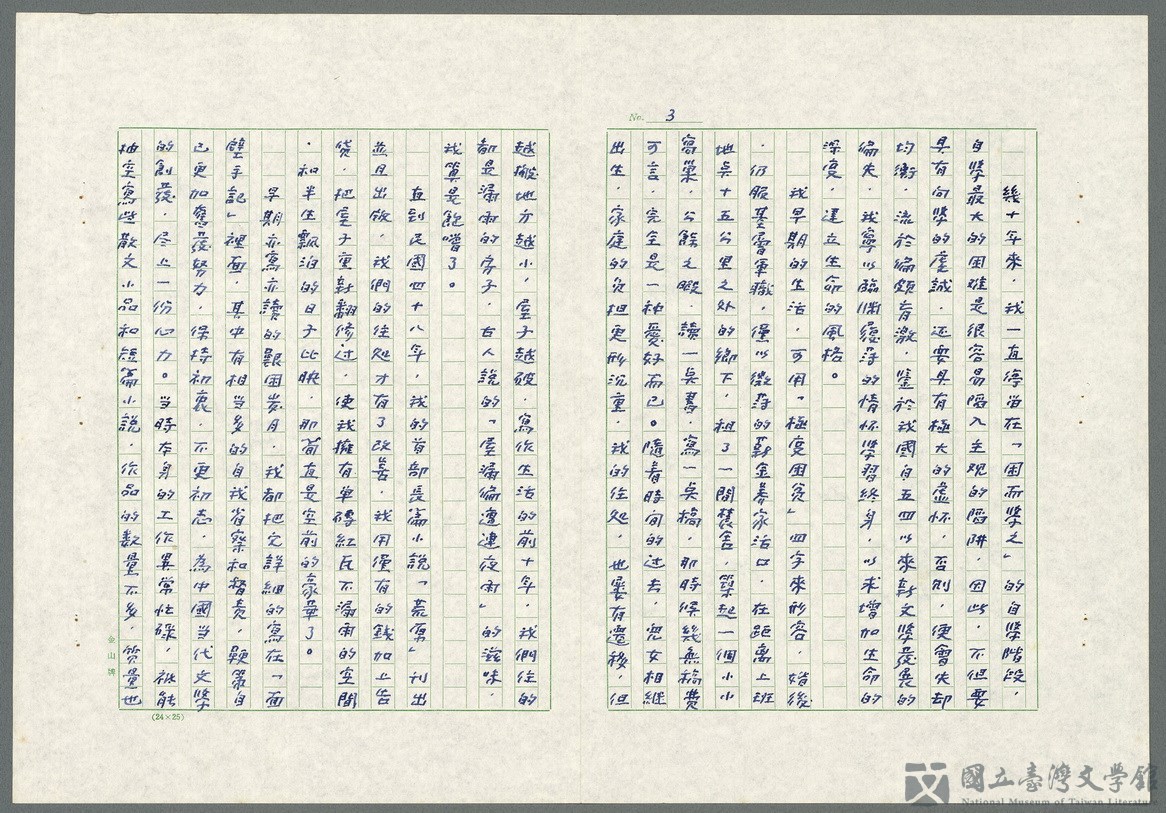 No. 3
幾十年來，我一直停留在「困而學之」的自學階段，
自學最大的困難是很容易陷入主觀的陷阱，因此，不但要
具有向學的虔誠，還要具有極大的虛懷，否則，便會失却
均衡，流於偏頗盲激，鑒於我國自五四以來新文學發展的
偏失，我寧以臨淵履薄的情懷學習終身，以求增加生命的
深度，建立生命的風格。
我早期的生活，可用「極度困窮」四字來形容，婚後
，仍服基層軍職，僅以微薄的薪金養家活口，在距離上班
地點十五公里之外的鄉下，租了一間舊舍，築起一個小小
窩巢，公餘之暇，讀一點書，寫一點稿，那時候幾無稿費
可言，完全是一種愛好而已。隨着時間的过去，兒女相繼
出生，家庭的負担更形沉重，我的住処，也屢有遷移，但
越搬地方越小，屋子越破，寫作生活的前十年，我們住的
都是漏雨的房子，古人說的「屋漏偏遭連夜雨」的滋味，
我算是飽嚐了。
直到民國四十八年，我的首部長篇小說「荒原」刊出
並且出版，我們的住処才有了改善，我用僅有的錢加上告
貸，把屋子重新翻修过，使我擁有单磚紅瓦不漏雨的空間
，和半生飄泊的日子比映，那简直是空前的豪華了。
早期亦寫亦讀的艱困岁月，我都把它詳細的寫在「面
壁手記」裡面，其中有相当多的自我省察和督責，鞭策自
已更加奮發努力，保持初衷，不更初志，為中國当代文學
的創發，尽上一份心力。当時本身的工作異常忙碌，祇能
抽空寫些散文小品和短篇小說，作品的数量不多，質量也
金山牌
(24×25)
國立臺灣文學館
National Museum of Taiwan Literature